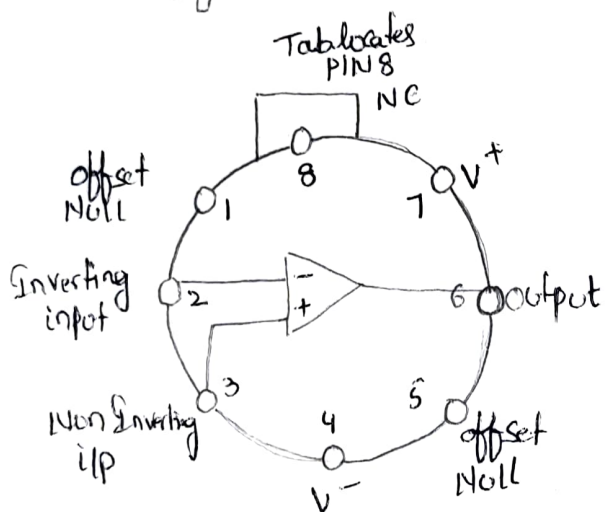 Tab locates
PIN 8
NC
8
offset
NULL
1
7
V+
Inverting
input
2
−
+
6
output
3
Non Inverting
i/p
4
V−
5
offset
NULL